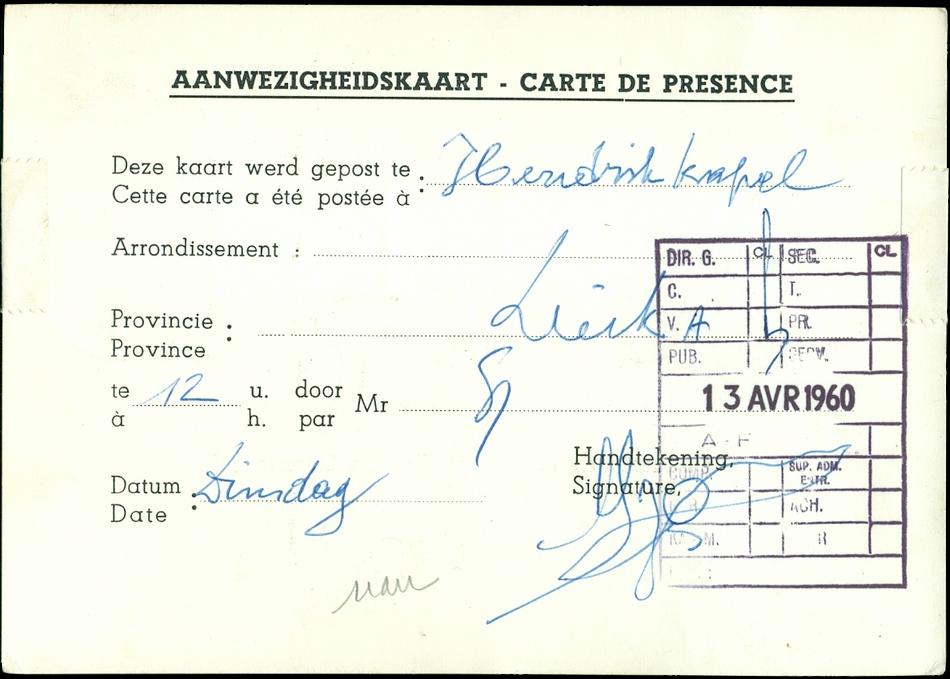 AANWEZIGHEIDSKAART - CARTE DE PRESENCE
Deze kaart werd gepost te : Hendrik kapel
Cette carte a été postée à :
Arrondissement :
Provincie :
Province
te 12 u. door Mr
à h. par
Datum : Dinsdag
Date
Handtekening,
Signature,
DIR. G. CL SEC. CL
C. T.
V. A PR.
PUB. SERV.
13 AVR 1960
A - F
COMP. SUP. ADM.
ENTR.
ACH.